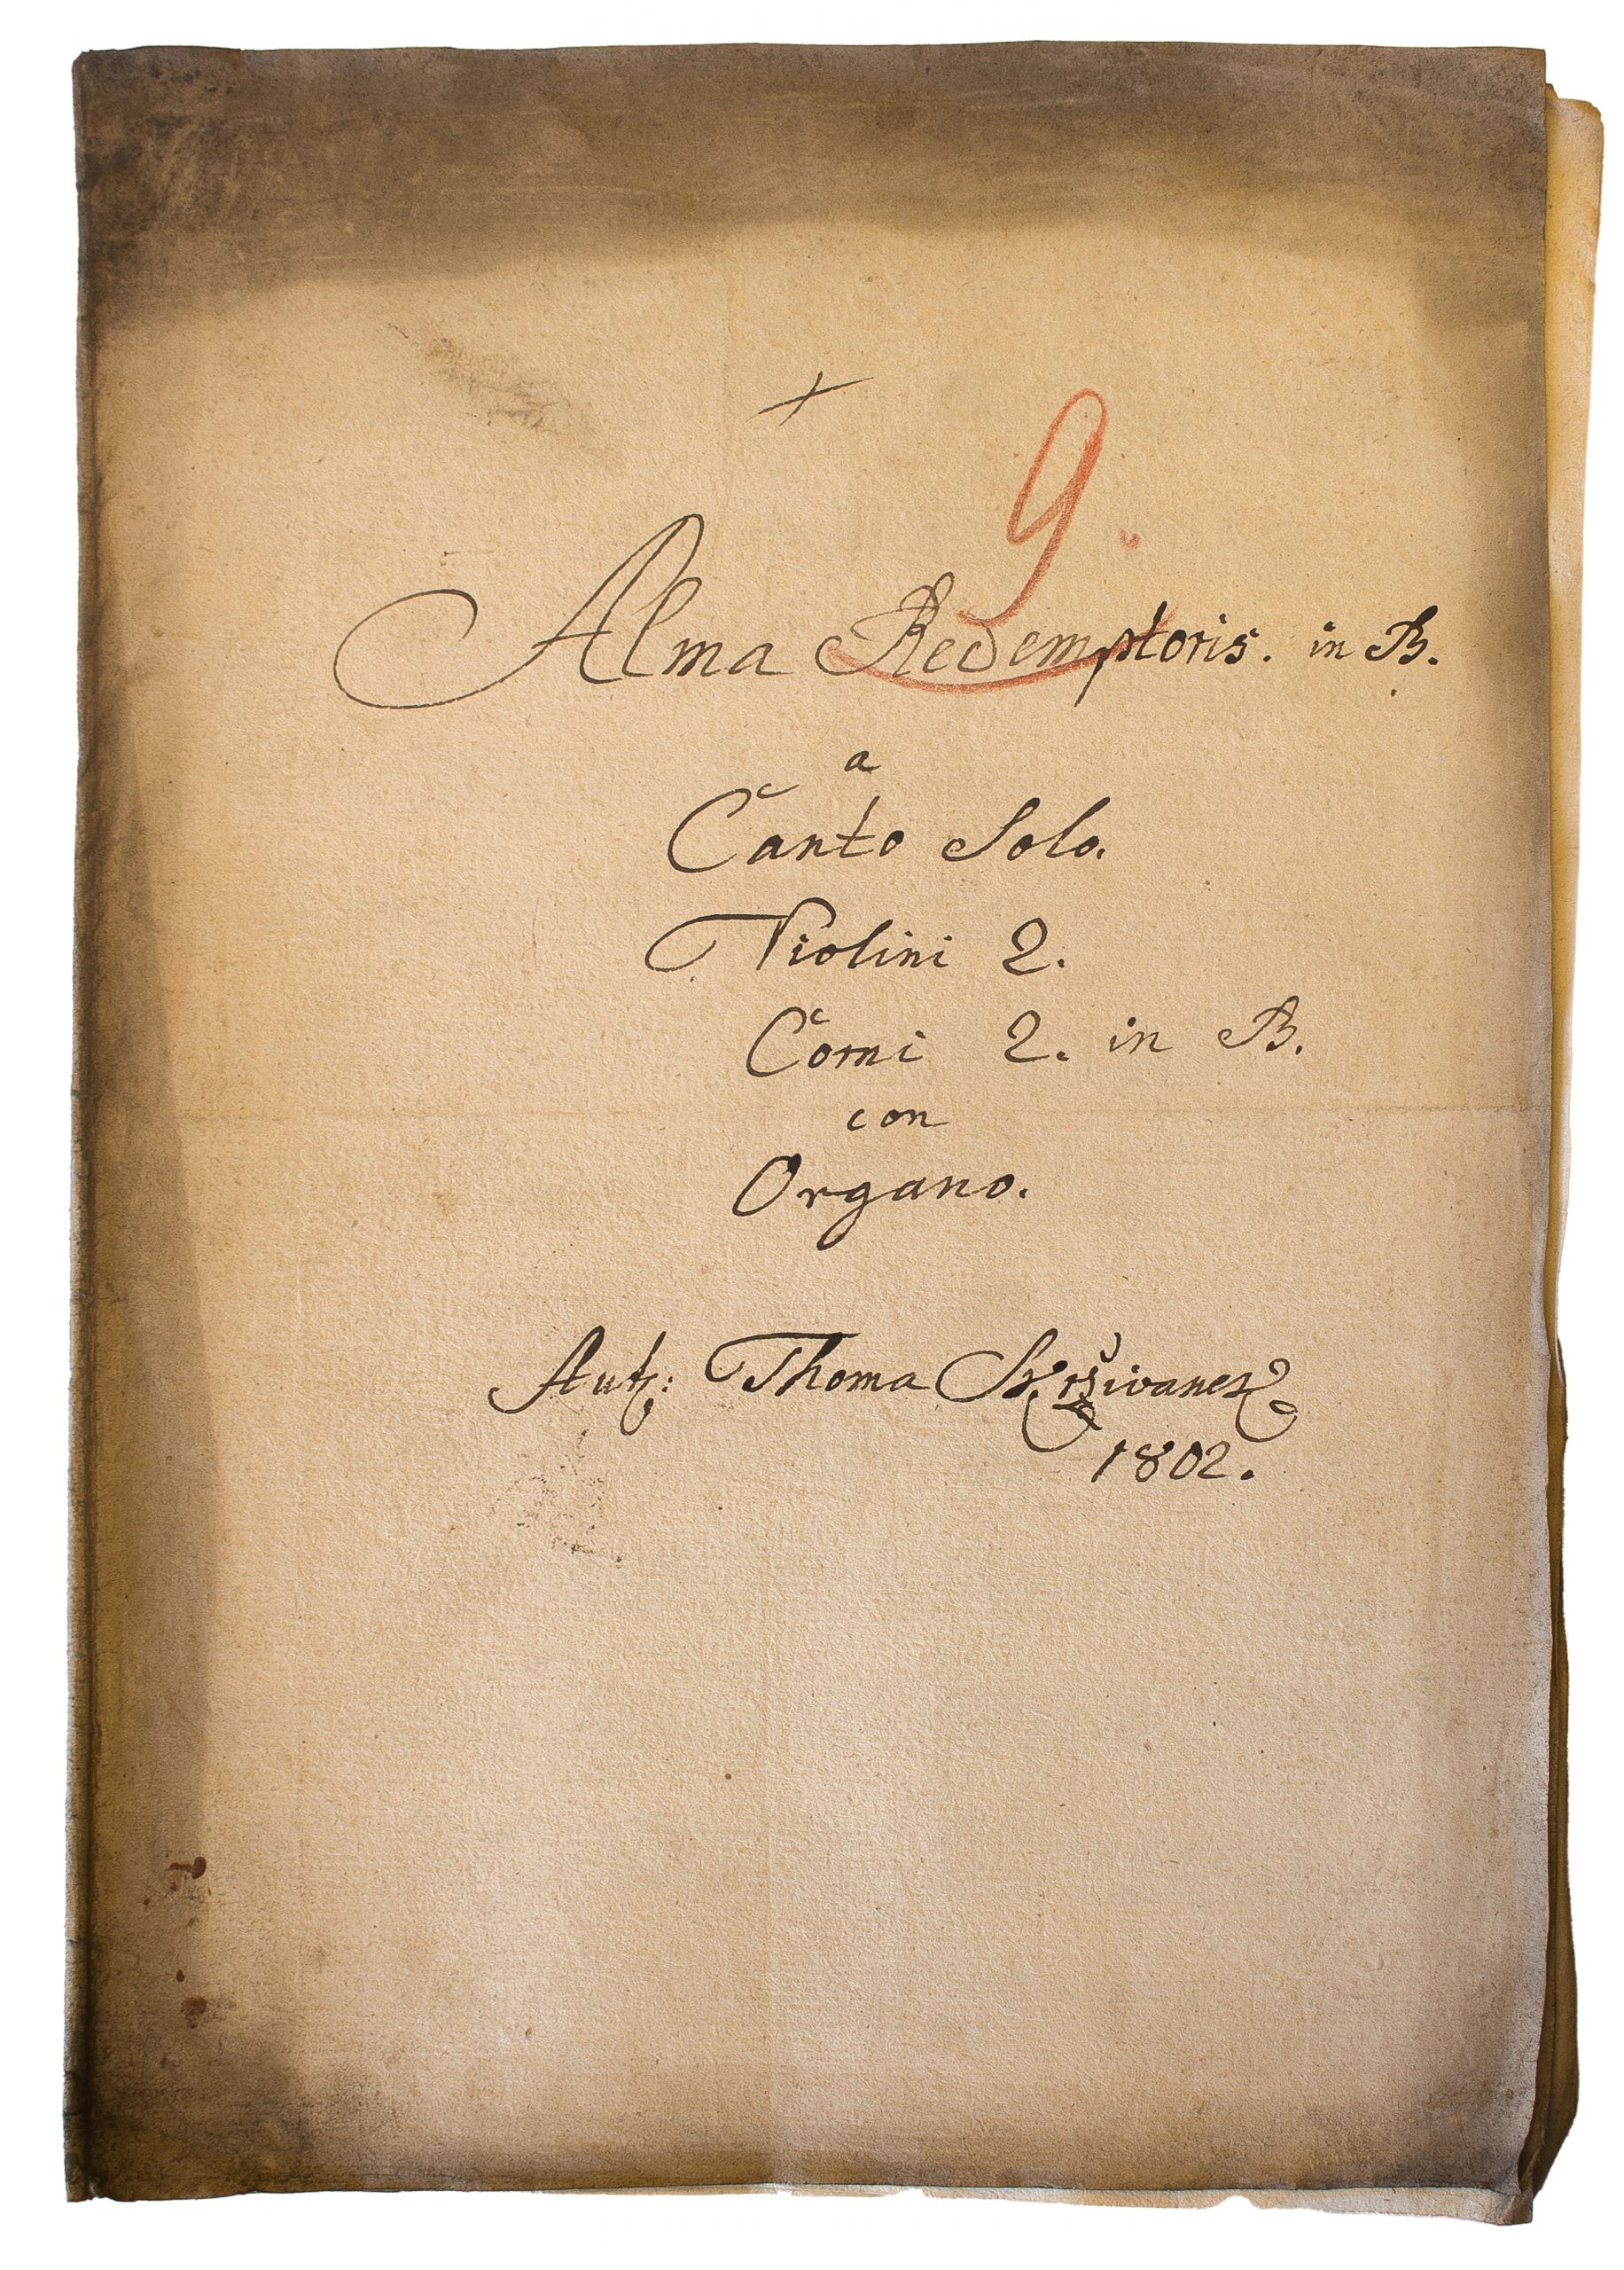 9.
Alma Redemptoris. in B.
a
Canto Solo.
Violini 2.
Corni 2. in B.
con
Organo.
Aut: Thoma
1802.